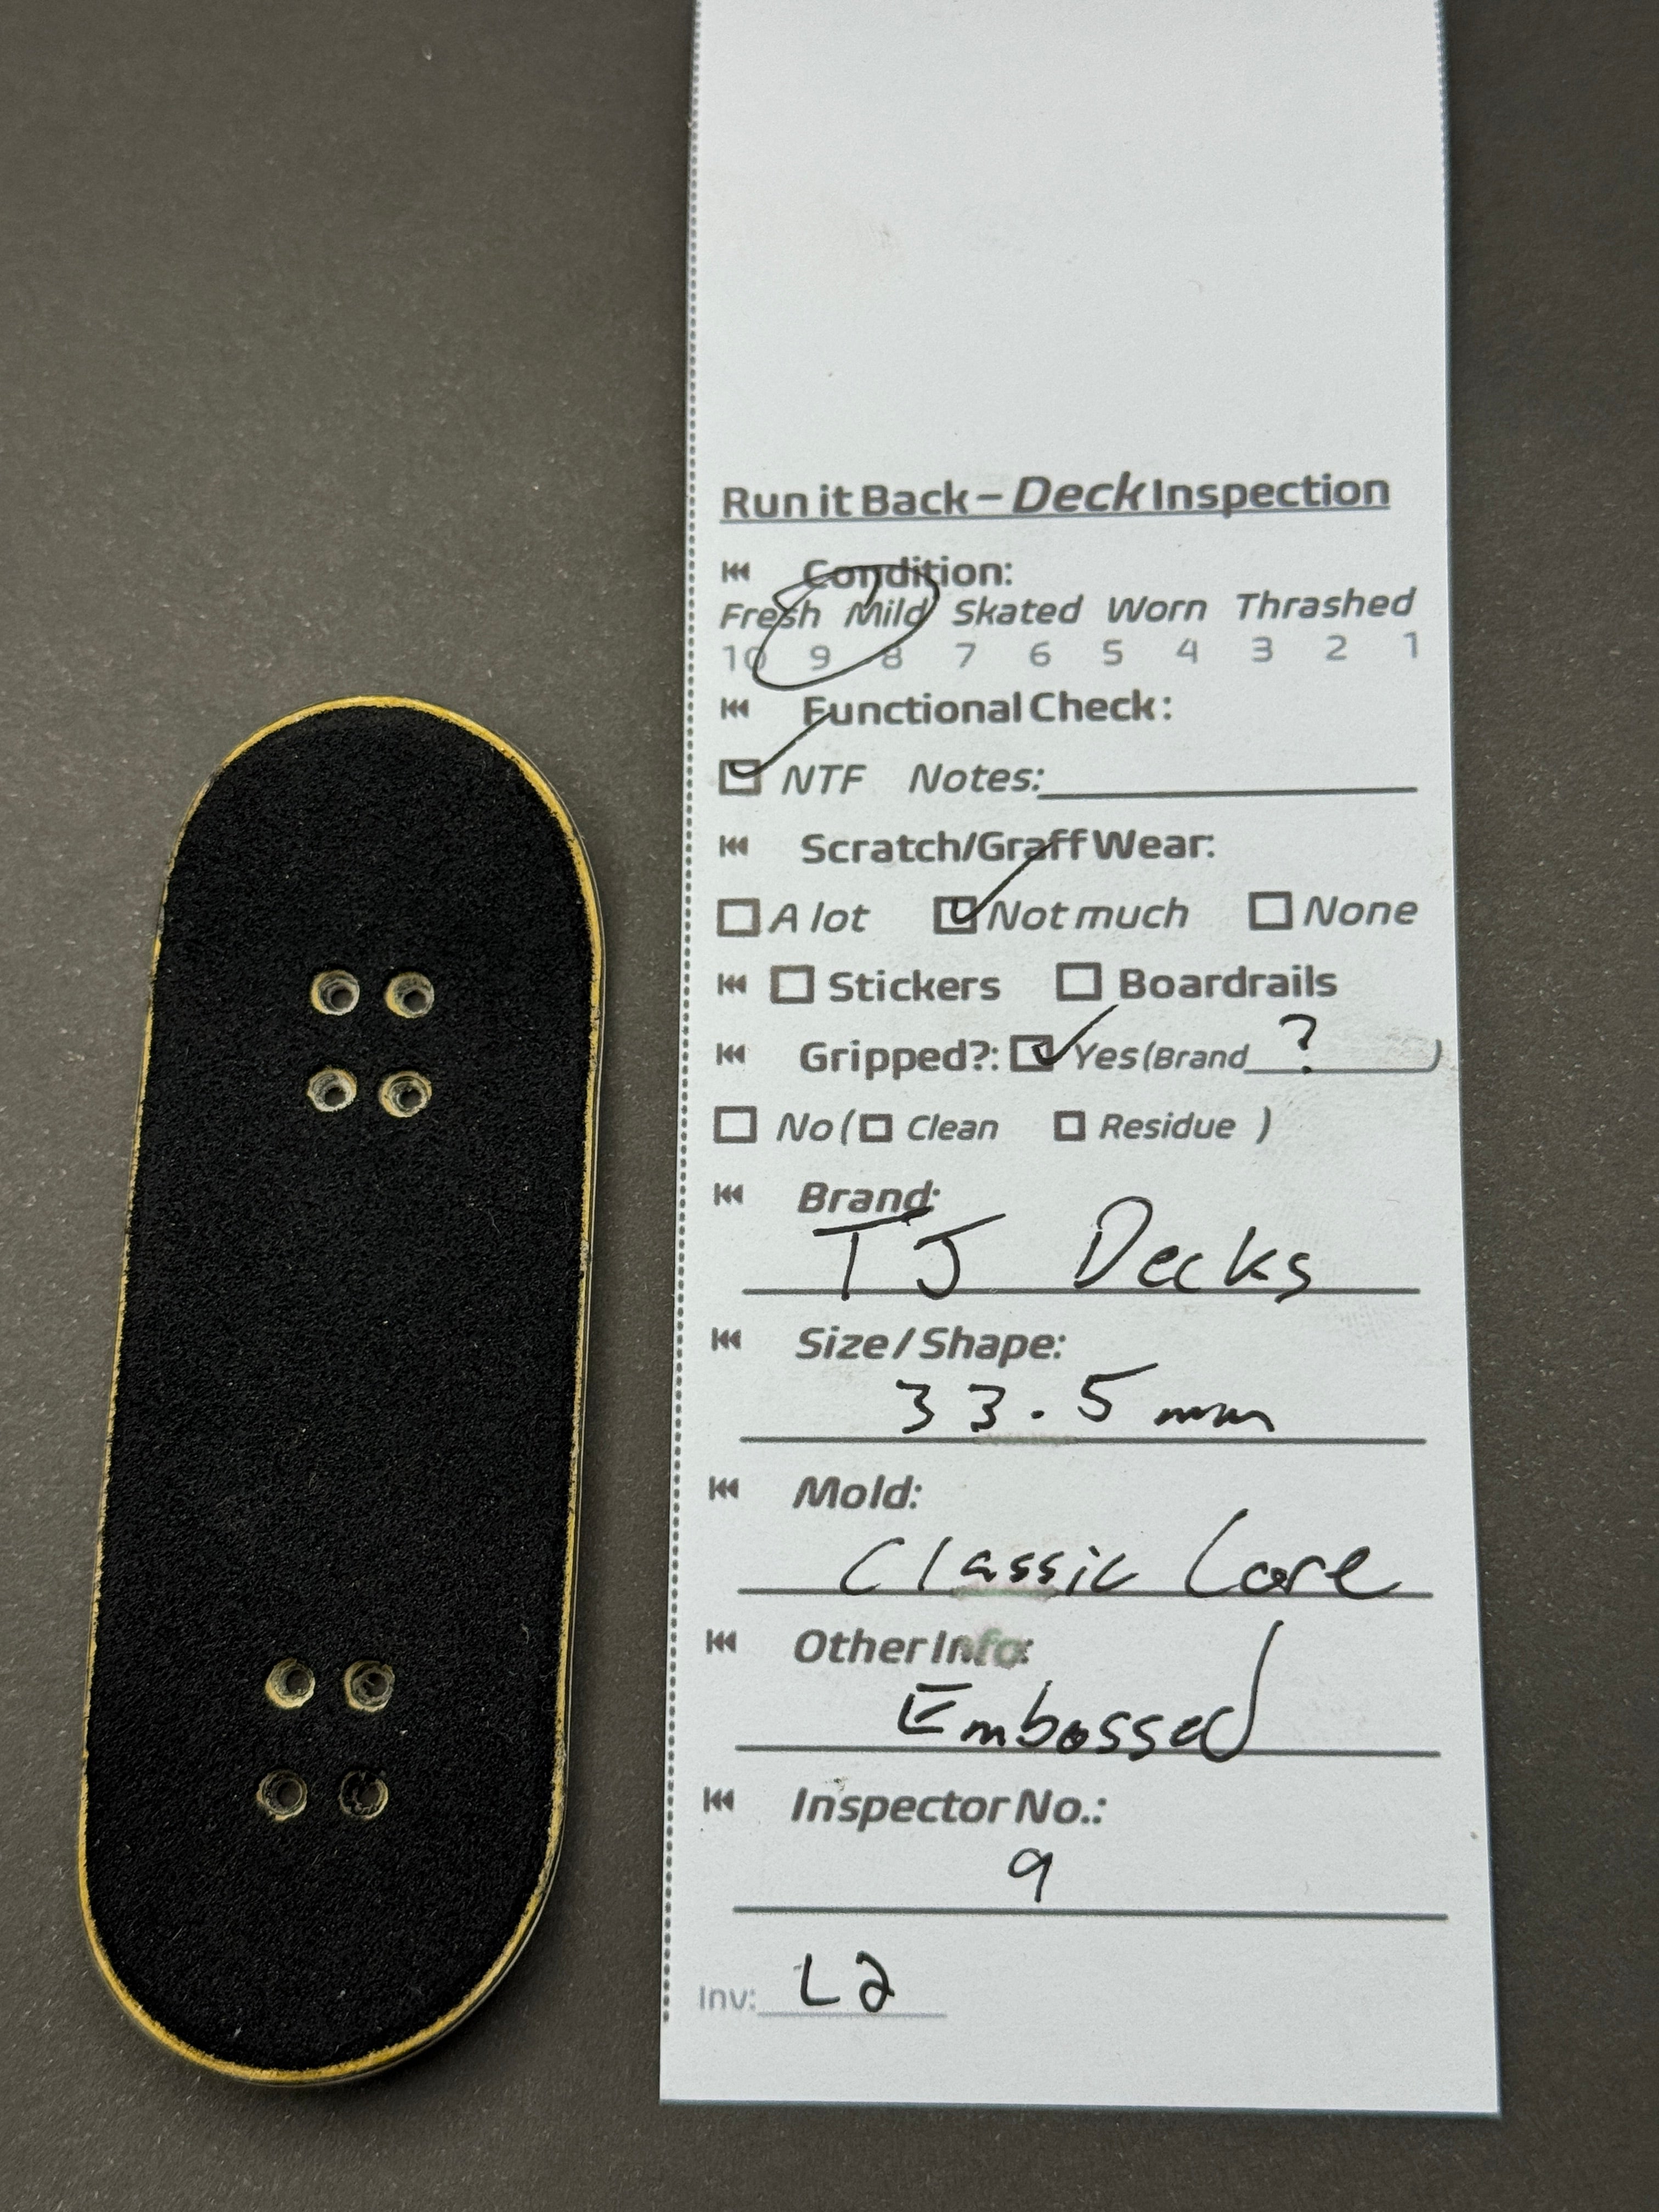 Run it Back – Deck Inspection
Condition:
Fresh Mild Skated Worn Thrashed
10 9 8 7 6 5 4 3 2 1
Functional Check:
NTF Notes:
Scratch/Graff Wear:
A lot Not much None
Stickers Boardrails
Gripped?: Yes (Brand ? )
No ( Clean Residue )
Brand:
TJ Decks
Size / Shape:
33.5mm
Mold:
Classic Core
Other Info:
Embossed
Inspector No.:
9
Inv: L2